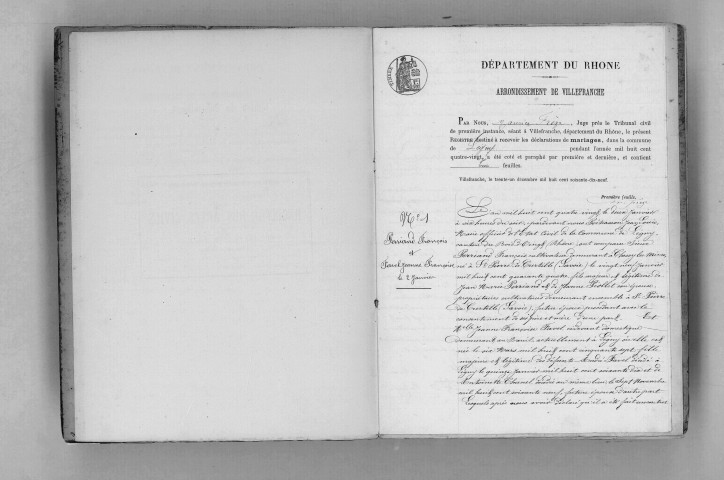 DÉPARTEMENT DU RHONE
ARRONDISSEMENT DE VILLEFRANCHE
PAR NOUS, Juge près le Tribunal civil
de première instance, séant à Villefranche, département du Rhône, le présent
REGISTRE destiné à recevoir les déclarations de mariages, dans la commune
de Légny pendant l'année mil huit cent
quatre-vingt, a été coté et paraphé par première et dernière, et contient
feuilles.
Villefranche, le trente-un décembre mil huit cent soixante-dix-neuf.
Première feuille.
N° 1
Perriand François
et
Favel Jeanne Françoise
le 2 Janvier
L'an mil huit cent quatre vingt le deux janvier
à six heures du soir, pardevant nous
Maire officier de l'Etat Civil de la Commune de Légny
canton du Bois d'Oingt (Rhône) ont comparu Sieur
Perriand François cultivateur demeurant à Chessy les Mines
né à St Pierre de (Savoie) le vingt neuf janvier
mil huit cent quarante quatre fils majeur et légitime de
Jean Marie Perriand et de Jeanne
propriétaires cultivateurs demeurant ensemble à St Pierre
de (Savoie), futur époux procédant avec le
consentement de ses père et mère d'une part. Et
Mlle Jeanne Françoise Favel domestique
demeurant au actuellement à Légny où elle est
née le six Mars mil huit cent cinquante sept fille
majeure et légitime des défunts Favel décédé à
Légny le quinze janvier mil huit cent soixante dix et de
Antoinette décédée au même lieu le sept Novembre
mil huit cent soixante neuf, future épouse d'autre part
Lesquels après nous avoir déclaré qu'il a été fait un contrat